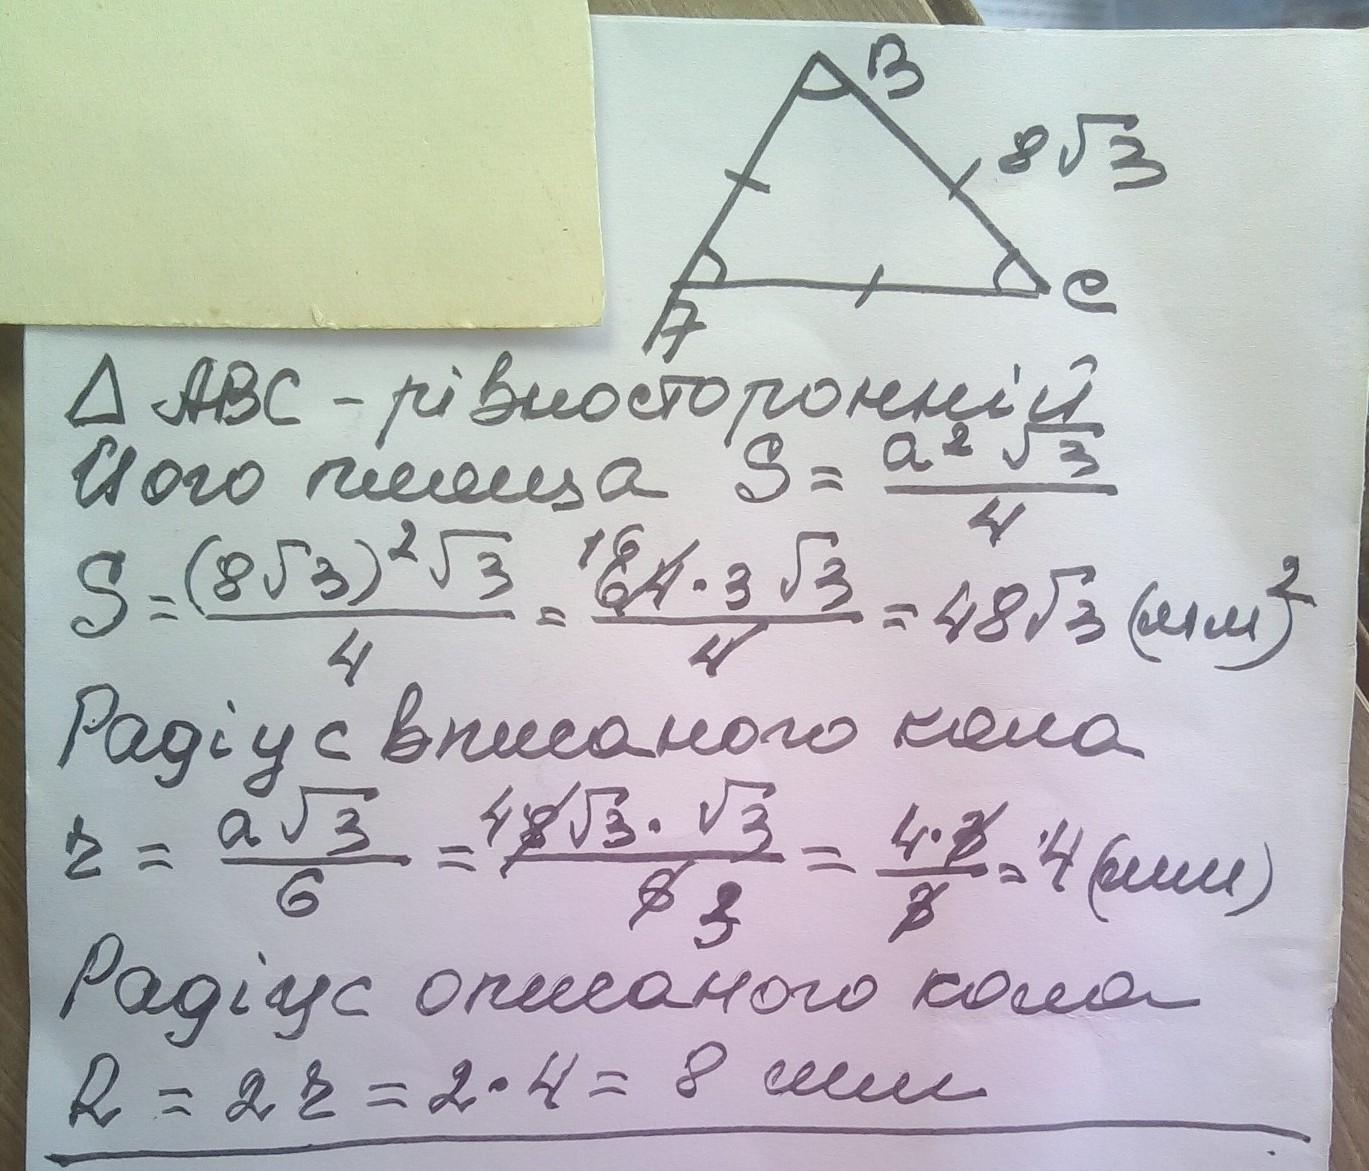 B
8√3
A
C
Δ ABC - рівносторонній
Його площа S = a²√3/4
S = (8√3)²√3/4 = 16 64·3√3/4 = 48√3 (мм)²
Радіус вписаного кола
r = a√3/6 = 4 8√3·√3/6 3 = 4·3/3 = 4 (мм)
Радіус описаного кола
R = 2r = 2·4 = 8 мм